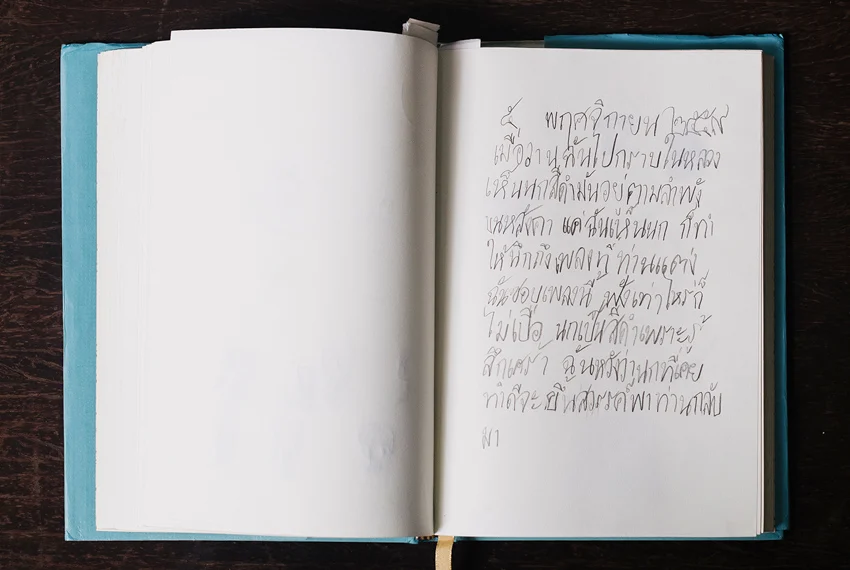 ๕ พฤศจิกายน ๒๕๕๙
เมื่อวานฉันไปกราบในหลวง
เห็นนกสีดำมันอยู่ตามลำพัง
บนหลังคา แค่ฉันเห็นนก ก็ทำ
ให้นึกถึงเพลงที่ ท่านแต่ง
ฉันชอบเพลงนี้ ฟังเท่าไหร่ก็
ไม่เบื่อ นกเป็นสีดำเพราะรู้
สึกเศร้า ฉันหวังว่านกที่เคย
ทำดีจะ สวรรค์พาท่านกลับ
มา